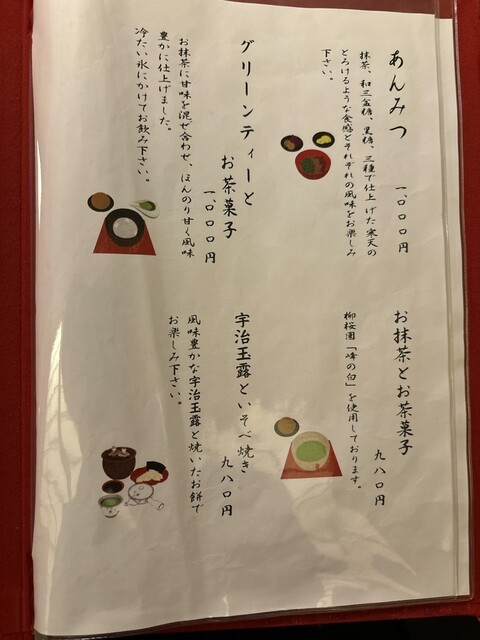 あんみつ
一、〇〇〇円
抹茶、和三盆糖、黒糖、三種で仕上げた寒天の
とろけるような食感とそれぞれの風味をお楽しみ
下さい。
グリーンティーと
お茶菓子
一、〇〇〇円
お抹茶に甘味を混ぜ合わせ、ほんのり甘く風味
豊かに仕上げました。
冷たい氷にかけてお飲み下さい。
お抹茶とお茶菓子
九八〇円
柳桜園「峰の白」を使用しております。
宇治玉露といそべ焼き
九八〇円
風味豊かな宇治玉露と焼いたお餅で
お楽しみ下さい。